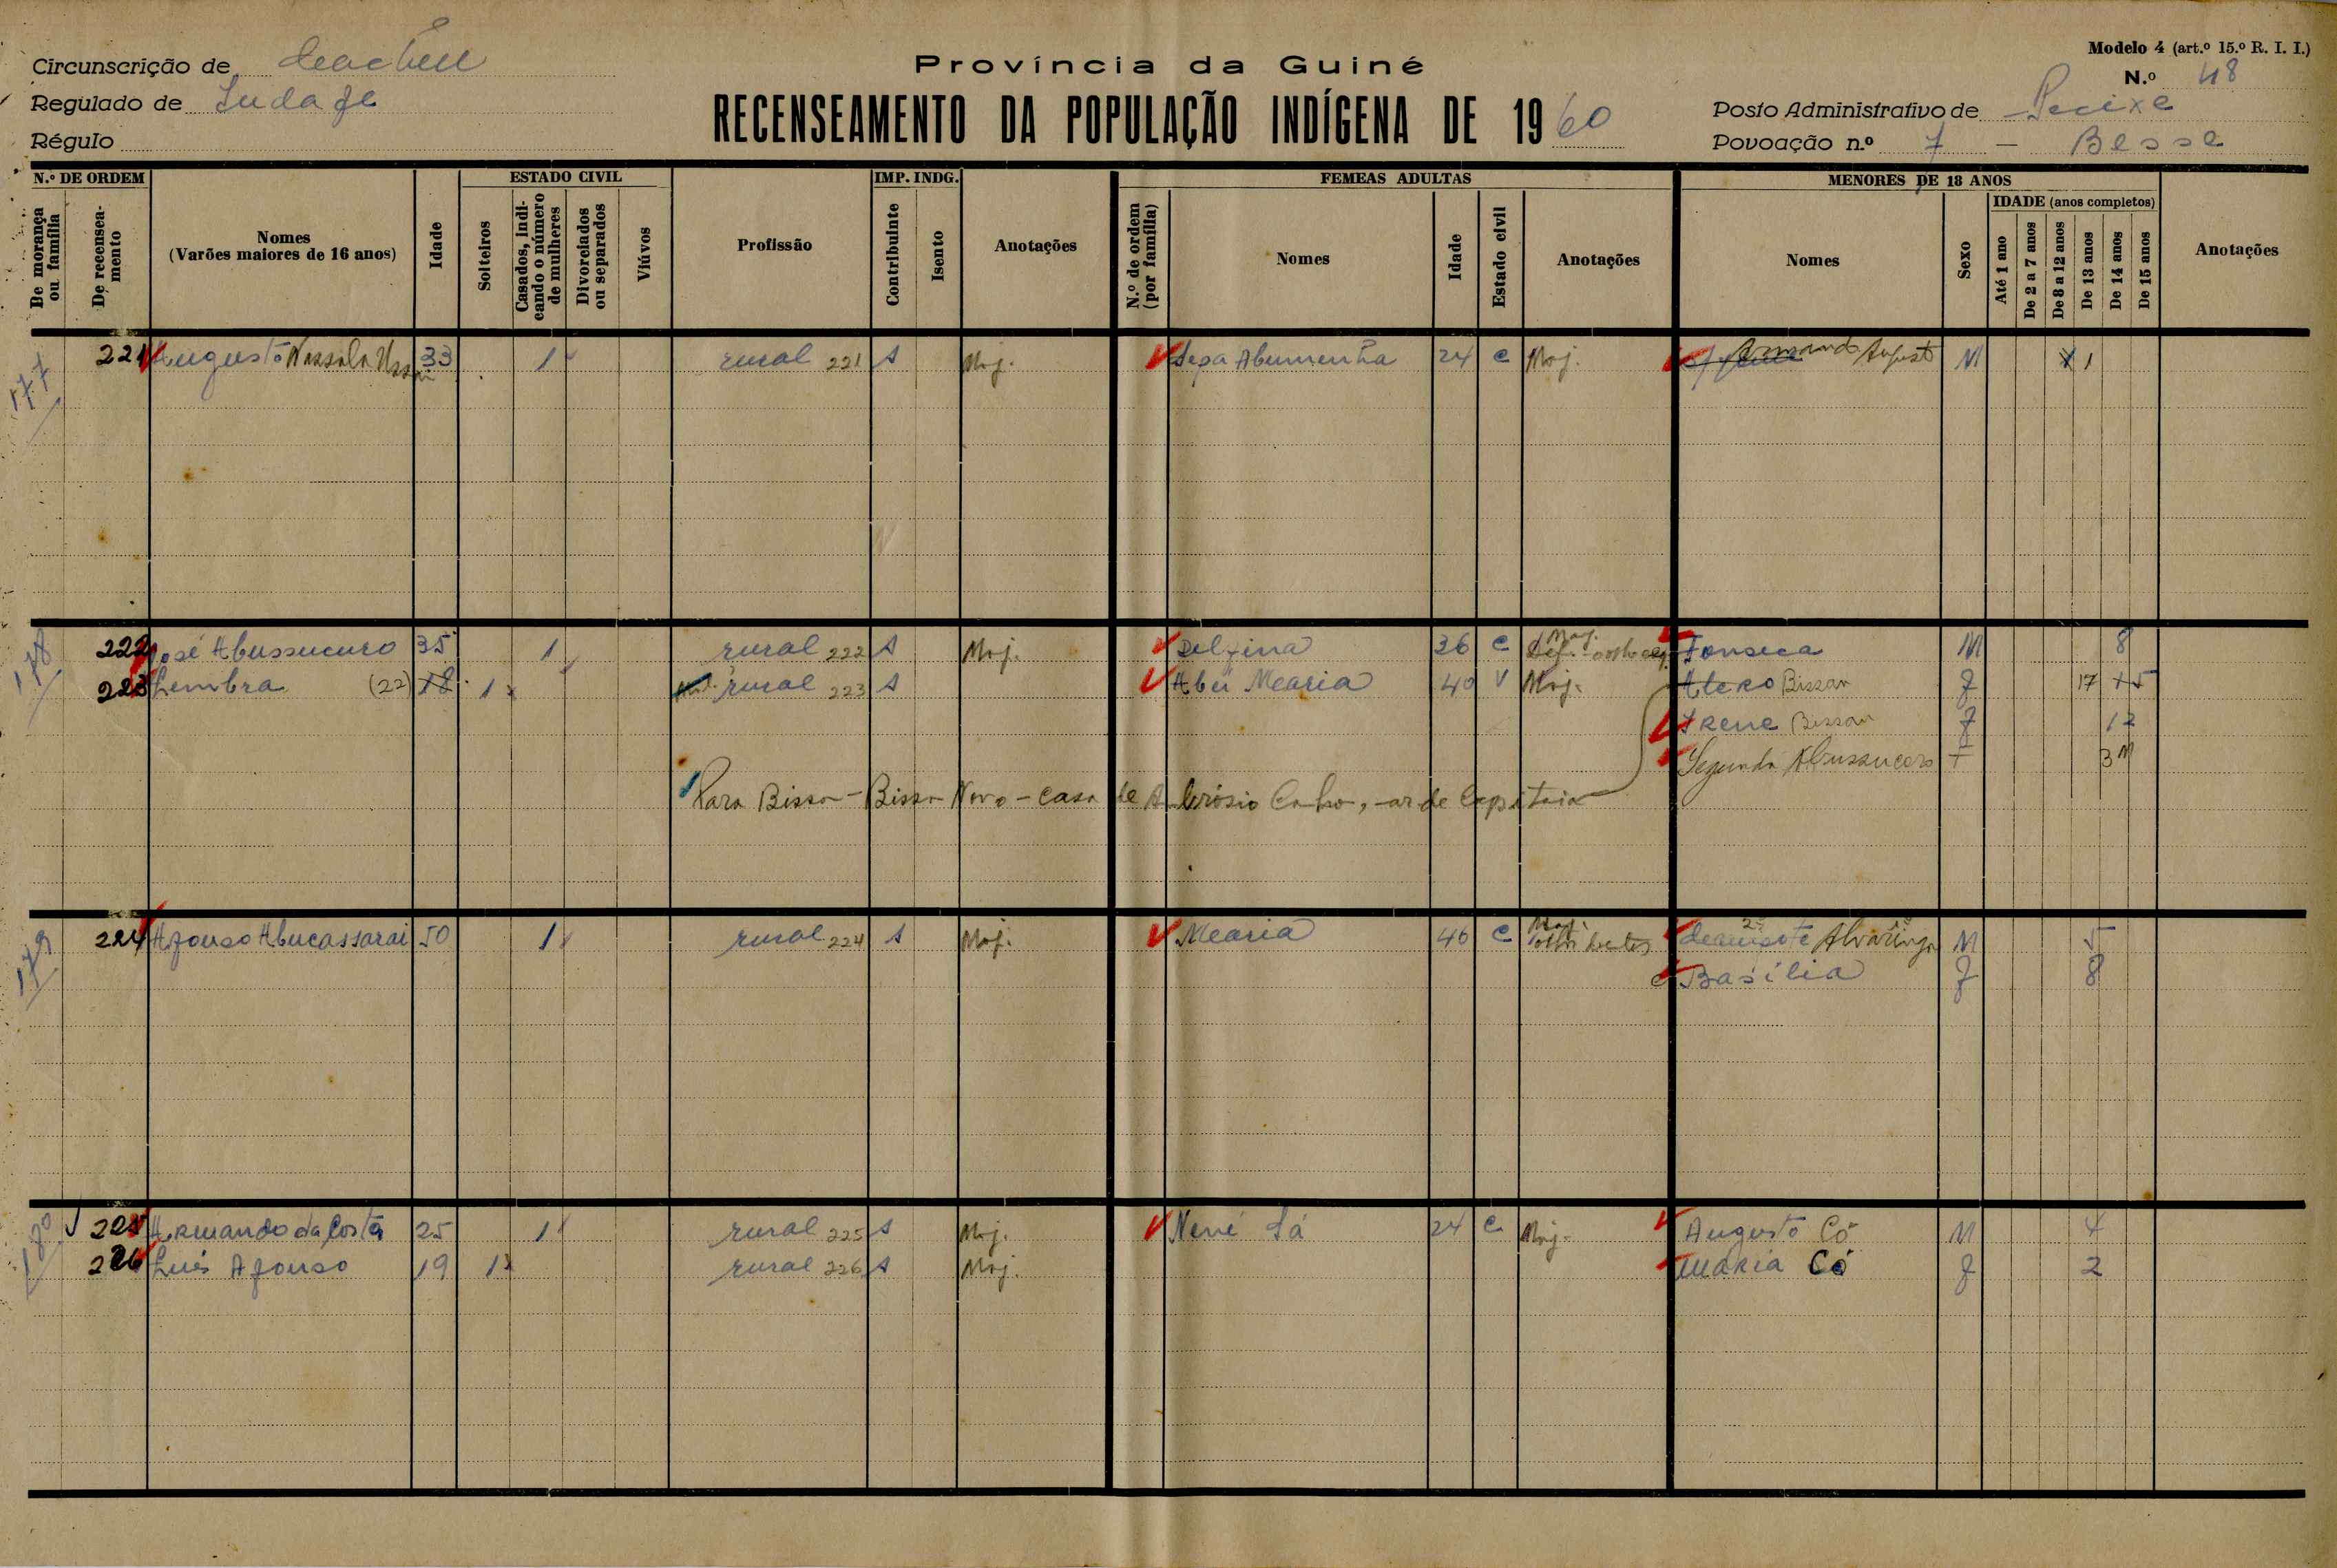 Província da Guiné
Modelo 4 (art.º 15.º R. I. I.)
Circunscrição de
N.º 48
Regulado de
RECENSEAMENTO DA POPULAÇÃO INDÍGENA DE 1960
Posto Administrativo de Pecixe
Régulo
Povoação n.º 7 — Besse
N.º DE ORDEM
De morança ou família
De recenseamento
Nomes
(Varões maiores de 16 anos)
Idade
ESTADO CIVIL
Solteiros
Casados, indicando o número de mulheres
Divorciados ou separados
Viúvos
Profissão
IMP. INDG.
Contribuinte
Isento
Anotações
FEMEAS ADULTAS
N.º de ordem (por família)
Nomes
Idade
Estado civil
Anotações
MENORES DE 18 ANOS
Nomes
Sexo
IDADE (anos completos)
Até 1 ano
De 2 a 7 anos
De 8 a 12 anos
De 13 anos
De 14 anos
De 15 anos
Anotações
177
221 Augusto 33 1 rural 221 A Moj. Abumenha 24 C Moj. Armando Augusto M 1
178
222 José Abussucuro 35 1 rural 222 A Moj. Delfina 36 C Moj. Fonseca M 8
223 Lembra (22) 18 1 rural 223 A Abú Maria 40 V Moj. Atero Bissau F 17 15
Irene Bissau F 12
Segunda Abussucuro F 3 M
Para Bissau - Bissau Novo - casa de Ambrósio
179
224 Afonso Abucassarai 50 1 rural 224 A Moj. Maria 46 C Moj. Alvaringa M 5
Basília F 8
180
225 Armando da Costa 25 1 rural 225 A Moj. Nené Sá 24 C Moj. Augusto Có M 4
226 Luís Afonso 19 1 rural 226 A Moj. Maria Có F 2